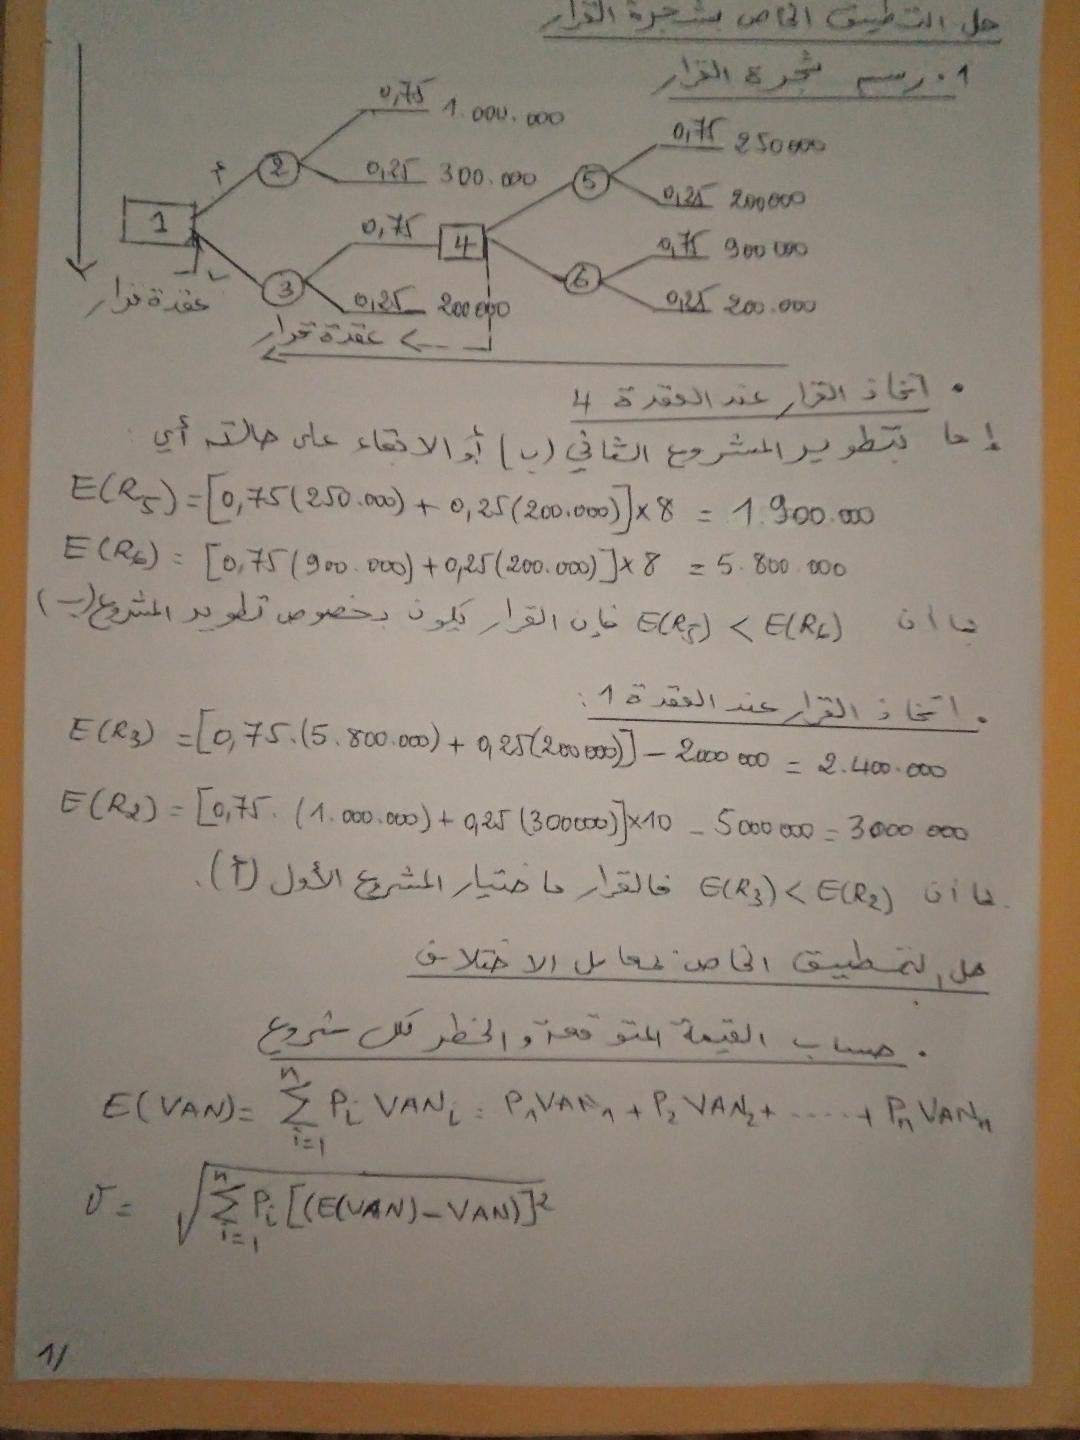 حل التطبيق الخاص بشجرة القرار
1. رسم شجرة القرار
0,75 1.000.000
0,25 300.000
أ
2
1
ب
3
0,75
4
0,25 200000
5
0,75 250000
0,25 200000
6
0,75 900000
0,25 200.000
عقدة قرار
عقدة قرار
• اتخاذ القرار عند العقدة 4
إما بتطوير المشروع الثاني (ب) أو الابقاء على حالته أي :
E(R5) = [0,75(250.000) + 0,25(200.000)]×8 = 1.900.000
E(R6) = [0,75(900.000)+0,25(200.000)]×8 = 5.800.000
بما أن E(R5) < E(R6) فإن القرار يكون بخصوص تطوير المشروع (ب)
• اتخاذ القرار عند العقدة 1 :
E(R3) = [0,75.(5.800.000) + 0,25(200000)] - 2000000 = 2.400.000
E(R2) = [0,75. (1.000.000) + 0,25(300000)]×10 - 5000000 = 3000000
بما أن E(R3) < E(R2) فالقرار باختيار المشروع الأول (أ).
حل التطبيق الخاص بمعامل الاختلاف
• حساب القيمة المتوقعة والخطر لكل مشروع
E(VAN) = n∑i=1 Pi VANi = P1VAN1 + P2 VAN2 + ..... + Pn VANn
σ = √n∑i=1 Pi [(E(VAN) - VAN)]²
1/